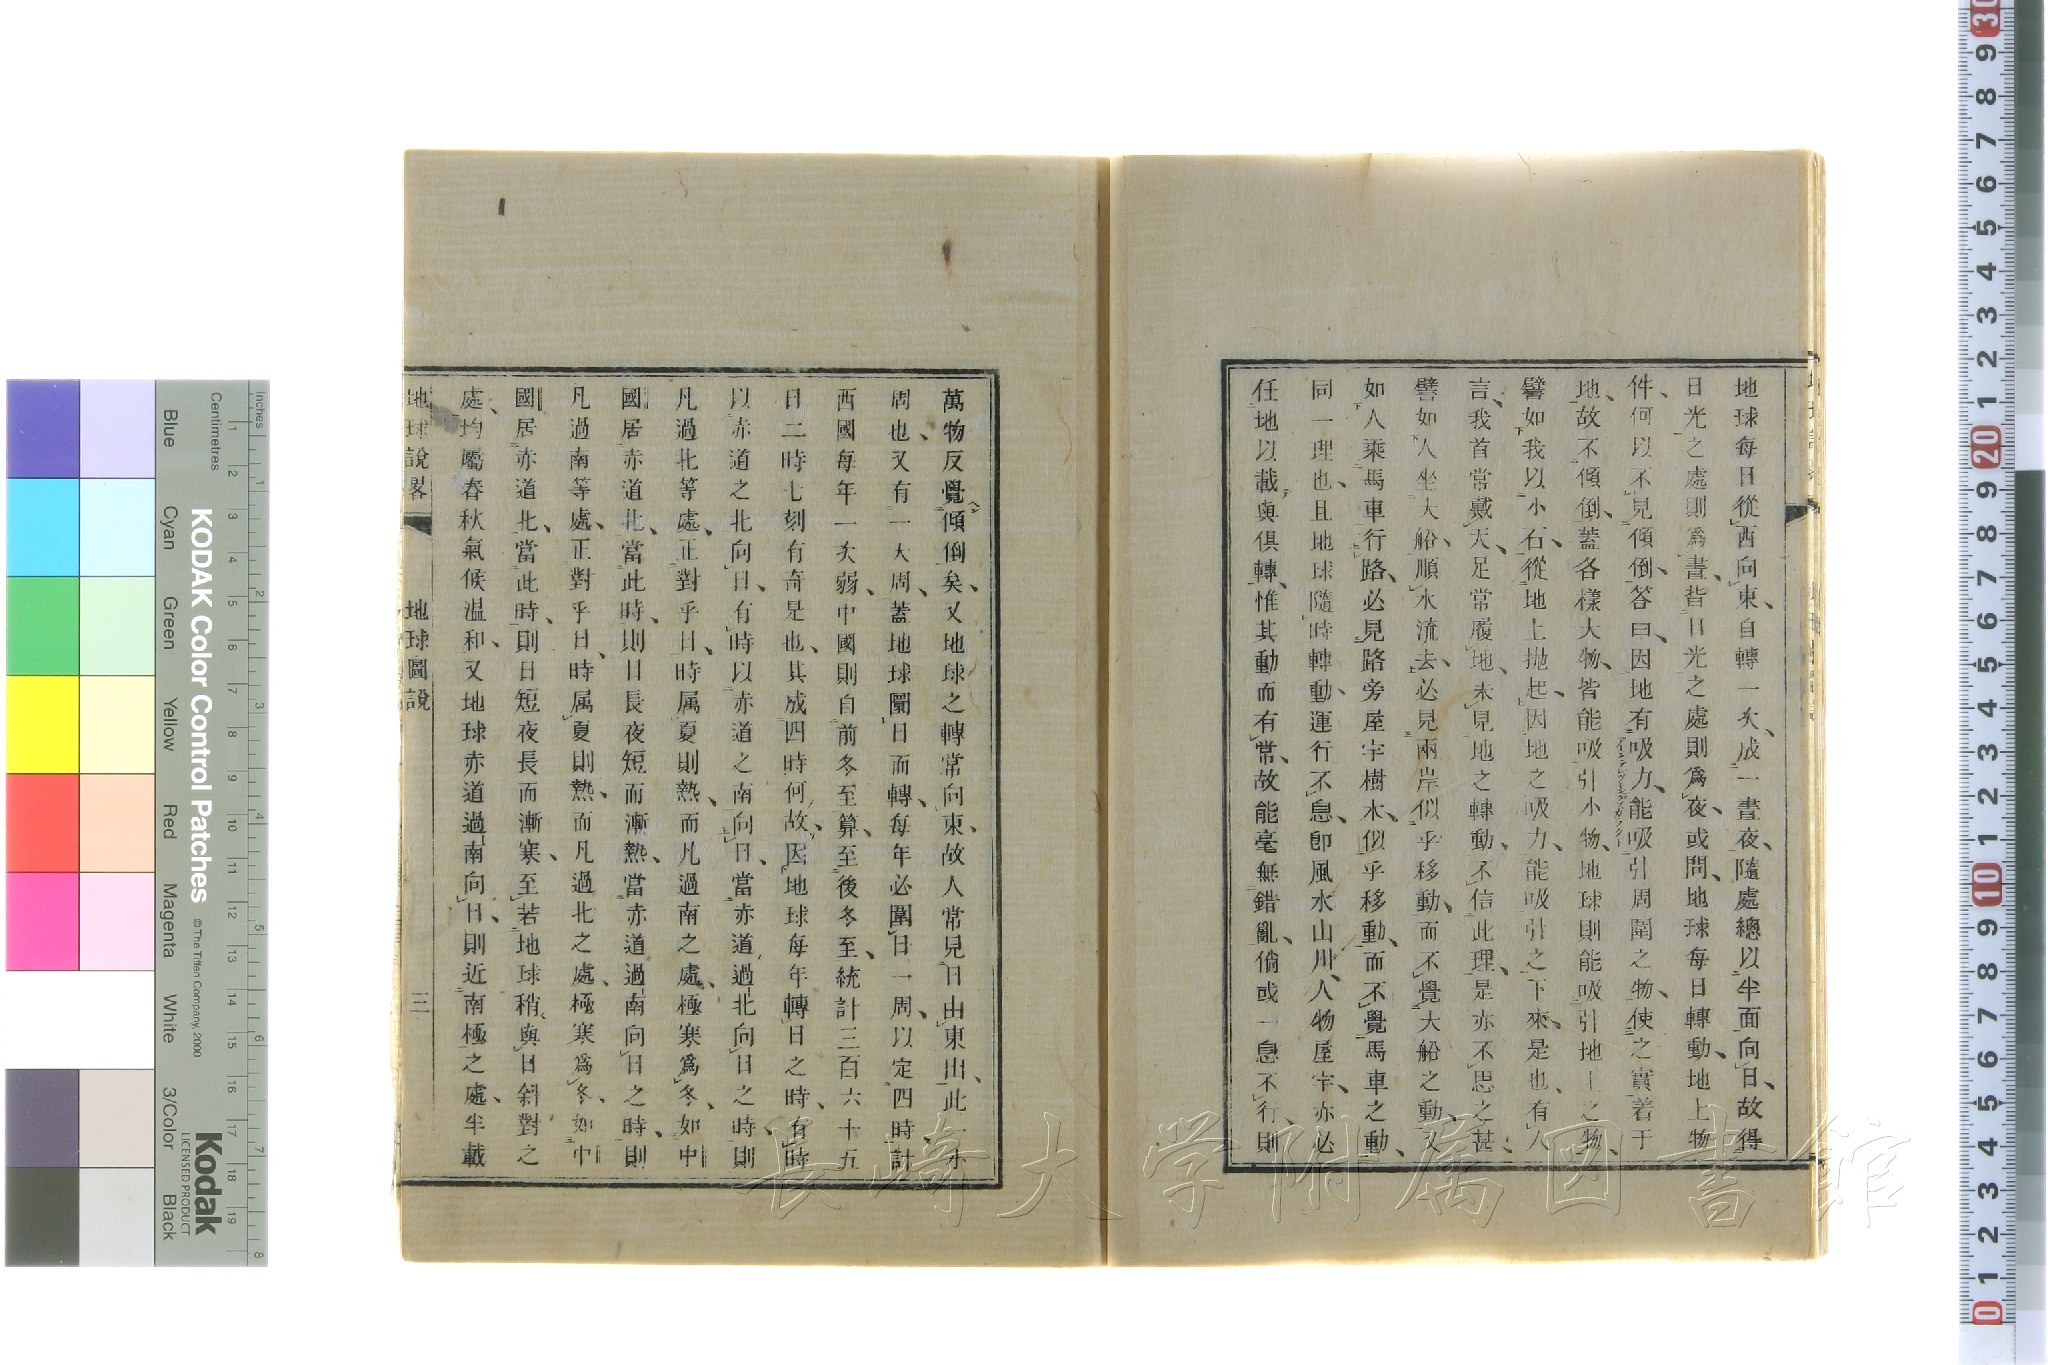 地球每日從西向東、自轉一次、成一晝夜、隨處總以半面向日、故得
日光之處則爲晝、背日光之處則爲夜、或問、地球每日轉動、地上物
件何以不見傾倒、答曰、因地有吸力、能吸引周圍之物、使之實着于
地、故不傾倒、蓋各樣大物、皆能吸引小物、地球則能吸引地上之物、
譬如我以小石、從地上拋起、因地之吸力、能吸引之下來、是也、有人
言、我首常戴天、足常履地、未見地之轉動、不信此理、是亦不思之甚、
譬如人坐大船、順水流去、必見兩岸似乎移動、而不覺大船之動、又
如人乘馬車行路、必見路旁屋宇樹木、似乎移動、而不覺馬車之動、
同一理也、且地球隨時轉動、運行不息、卽風水山川、人物屋宇、亦必
任地以載與俱轉、惟其動而有常、故能毫無錯亂、倘或一息不行、則
萬物反覺傾倒矣、又地球之轉常向東、故人常見日由東出、此一小
周也、又有一大周、蓋地球闈日而轉、每年必圍日一周、以定四時、計
西國每年一次弱、中國則自前冬至算、至後冬至、統計三百六十五
日二時七刻有奇是也、其成四時何故、因地球每年轉日之時、有時
以赤道之北向日、有時以赤道之南向日、當赤道過北向日之時、則
凡過北等處、正對乎日、時属夏則熱、而凡過南之處、極寒爲冬、如中
國居赤道北、當此時、則日長夜短而漸熱、當赤道過南向日之時、則
凡過南等處、正對乎日、時属夏則熱、而凡過北之處、極寒爲冬、如中
國居赤道北、當此時、則日短夜長而漸寒、至若地球稍與日斜對之
處、均屬春秋氣候溫和、又地球赤道過南向日、則近南極之處、半載
地球說畧 地球圖說 三
長崎大学附属図書館
KODAK Color Control Patches © The Tiffen Company, 2000
Kodak
LICENSED PRODUCT
Inches
Centimetres
Blue Cyan Green Yellow Red Magenta White 3/Color Black